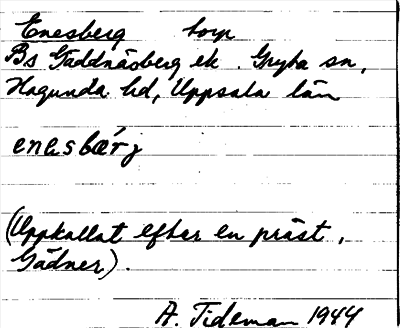 Enesberg torp
Bs Gäddnäsberg ek. Gryta sn,
Hagunda hd, Uppsala län
enesbærj
(Uppkallat efter en präst,
Gädner).
A. Tideman 1944